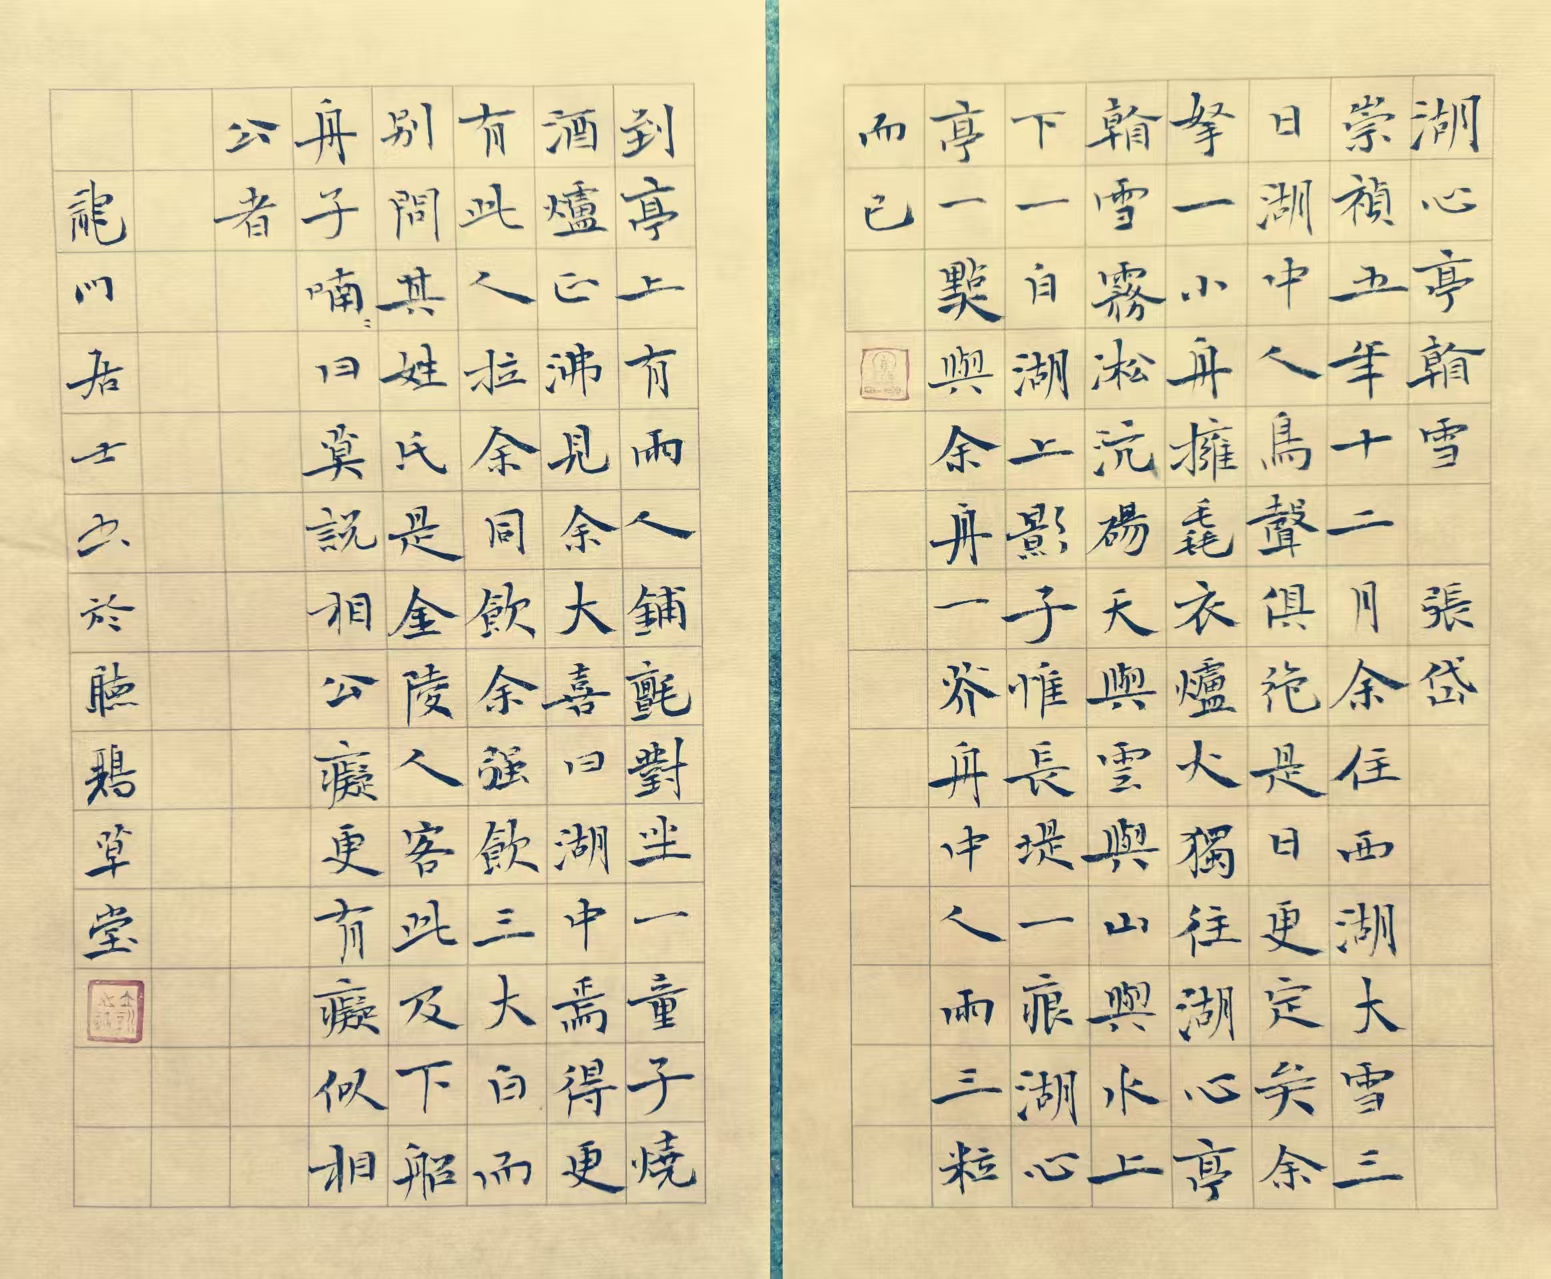 湖心亭看雪 張岱
崇禎五年十二月余住西湖大雪三
日湖中人鳥聲俱絶是日更定矣余
拏一小舟擁毳衣爐火獨往湖心亭
看雪霧凇沆碭天與雲與山與水上
下一白湖上影子惟長堤一痕湖心
亭一點與余舟一芥舟中人兩三粒
而已
到亭上有兩人鋪氈對坐一童子燒
酒爐正沸見余大喜曰湖中焉得更
有此人拉余同飲余强飲三大白而
別問其姓氏是金陵人客此及下船
舟子喃〻曰莫説相公癡更有癡似相
公者
龍門居士書於聽草堂